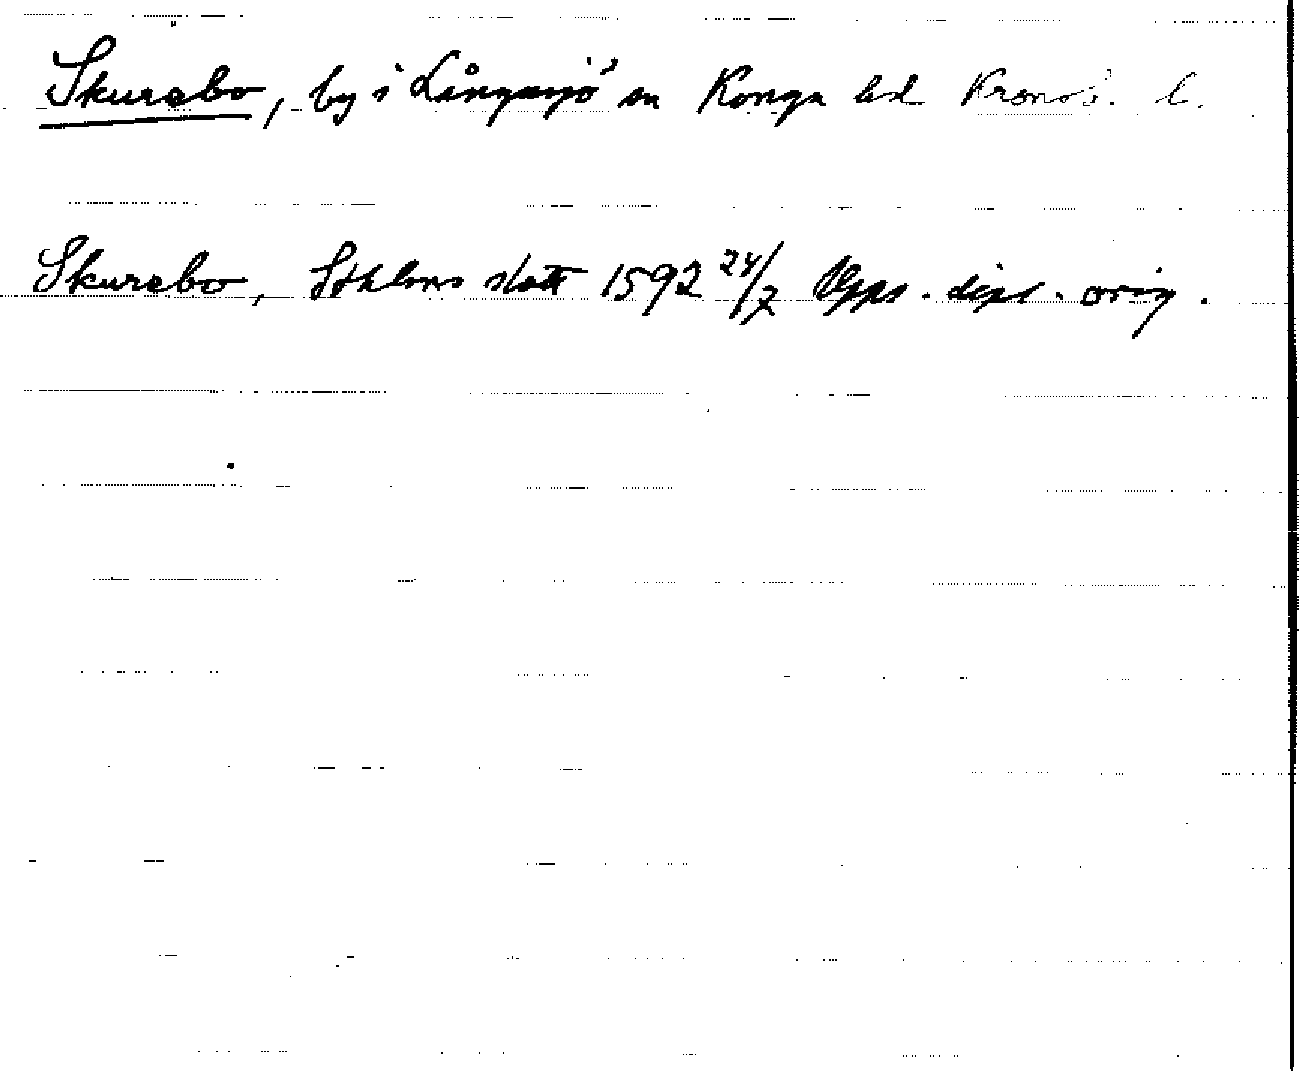 Skurebo, by i Långasjö sn Konga hd Kronob. l.
Skurebo, Sthlms slott 1592 24/7 Upps. dipl. orig.